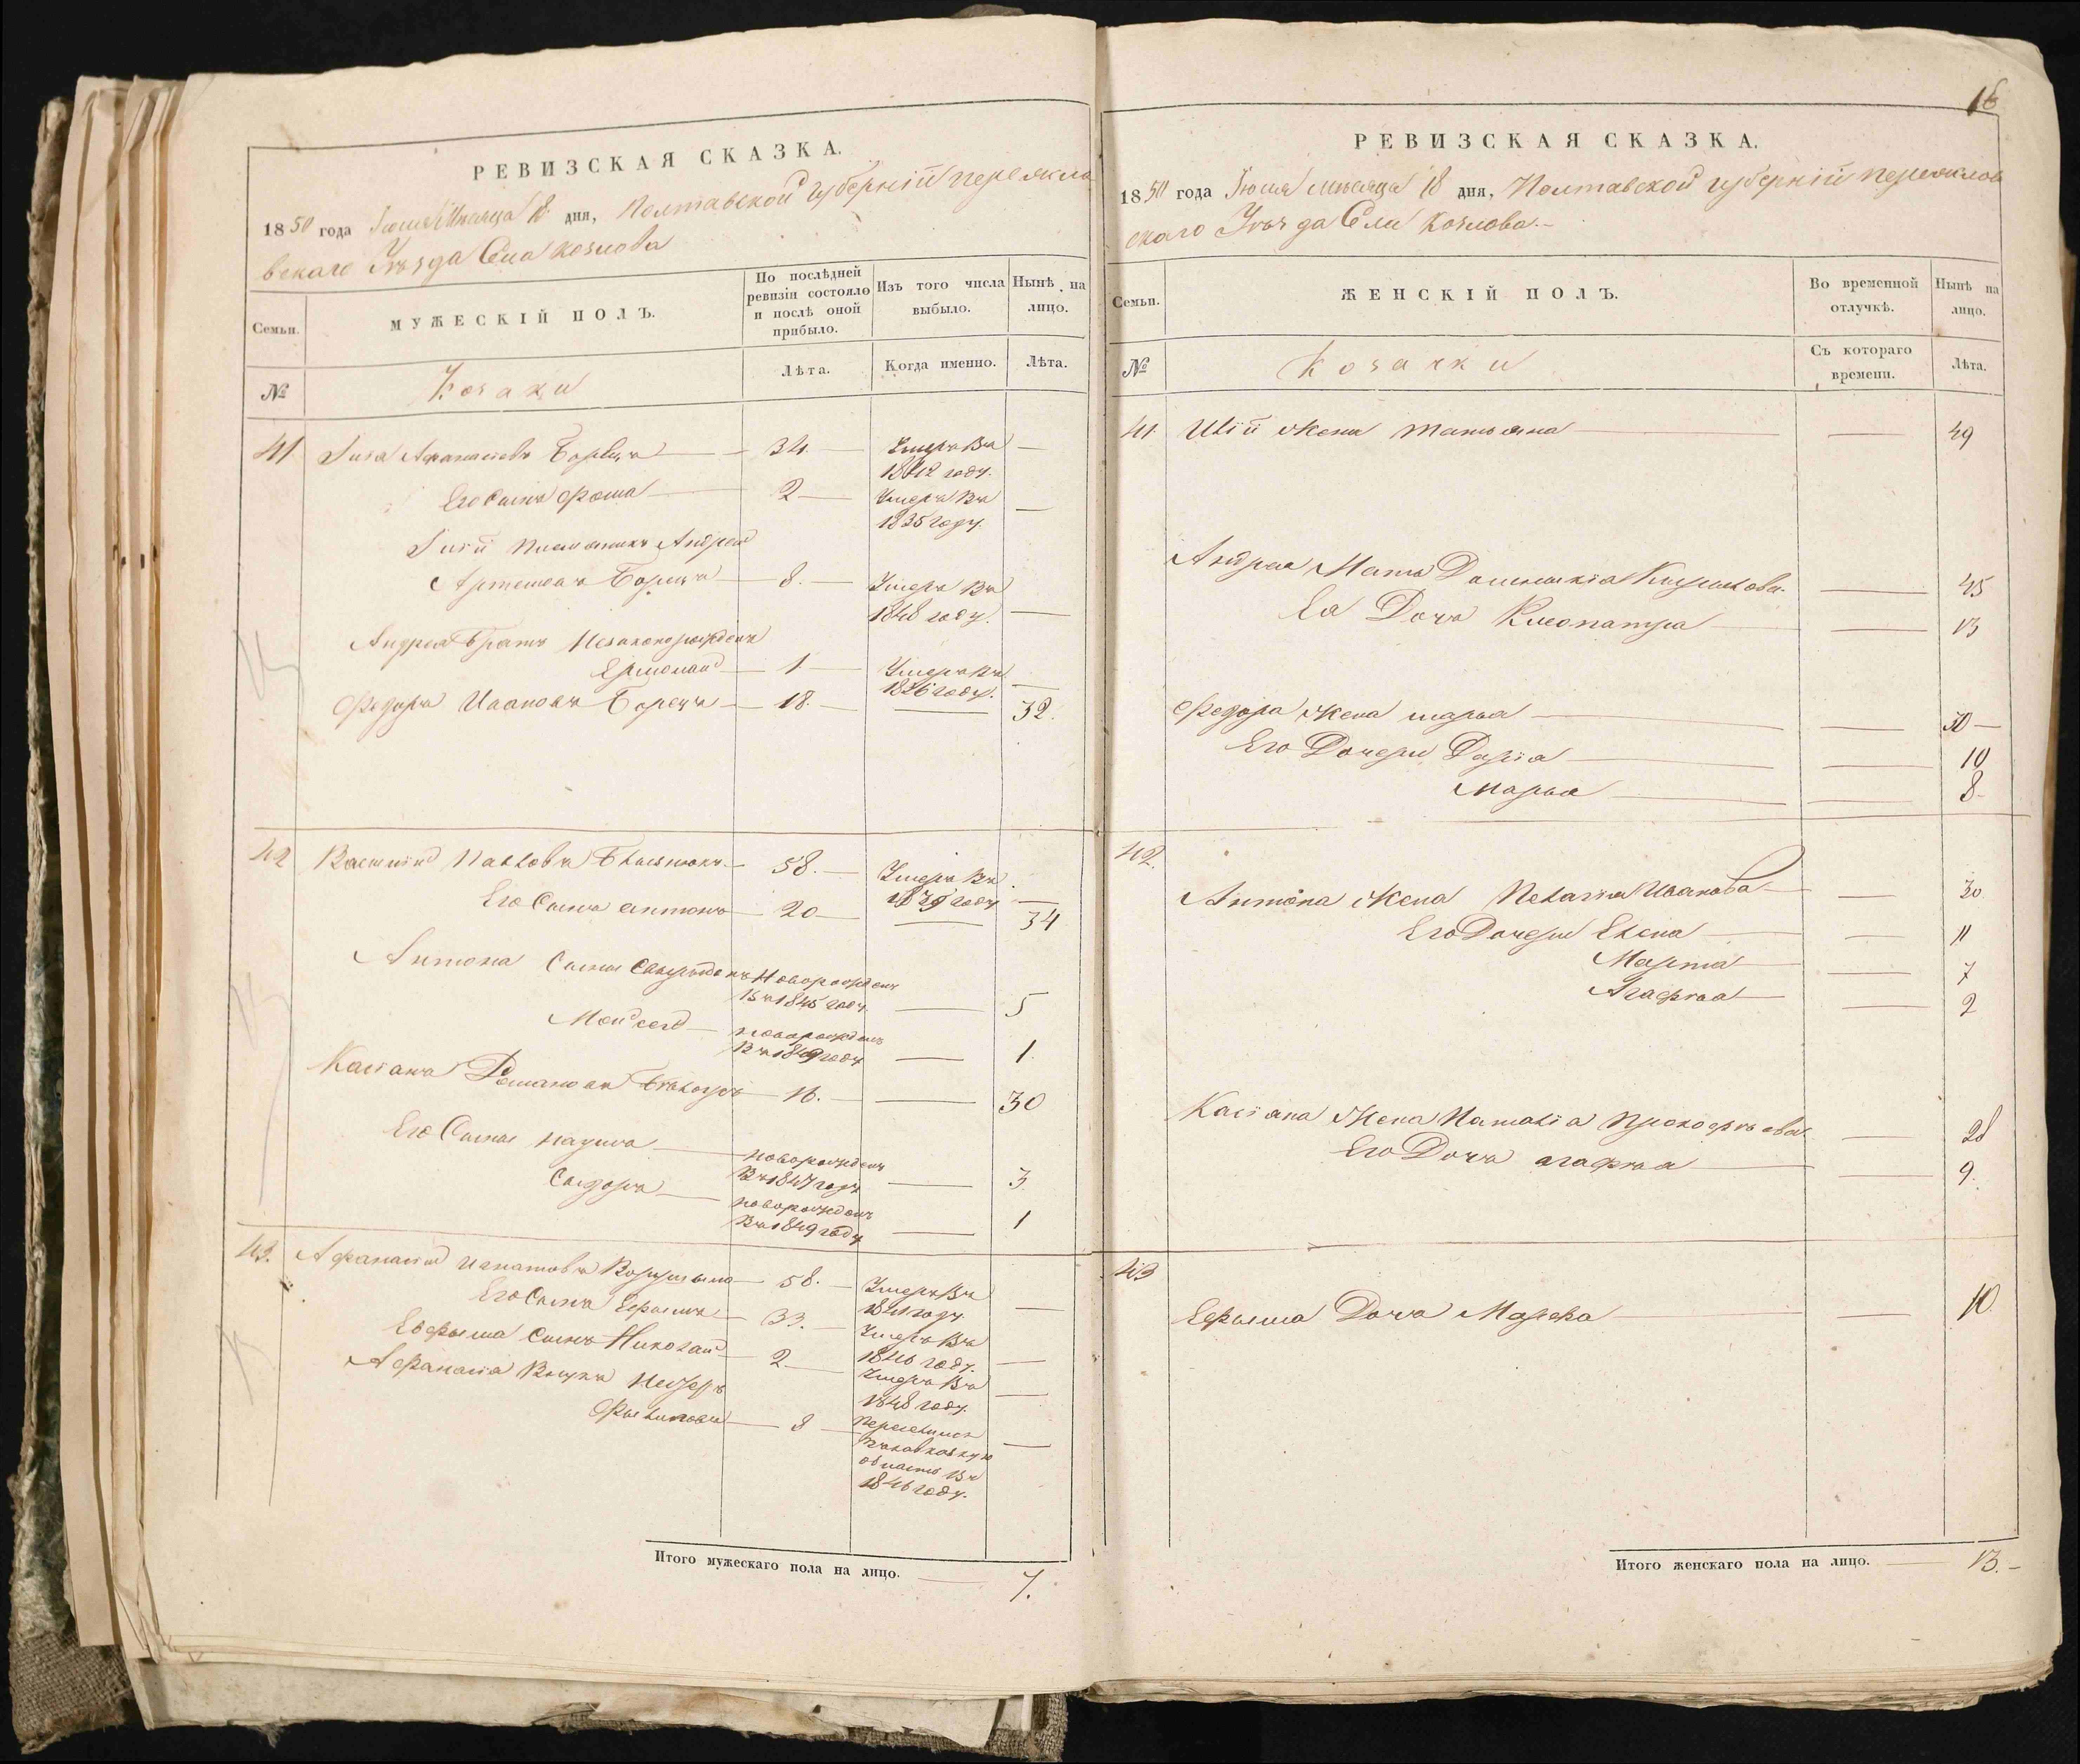 РЕВИЗСКАЯ СКАЗКА.
1850 года Іюня Мѣсяца 18 дня, Полтавской губерніи переясла
вскаго Уѣзда Села козлова
Семьи. МУЖЕСКІЙ ПОЛЪ. По послѣдней ревизіи состояло и послѣ оной прибыло. Изъ того числа выбыло. Нынѣ на лицо.
№ Козаки Лѣта. Когда именно. Лѣта.
41 Афанасіевъ 34. Умеръ Въ 1842 году. —
Его Сынъ фома 2 Умеръ Въ 1835 году. —
племянникъ Андрей
Артемовъ Борецъ 8. Умеръ Въ 1848 году. —
Андрея Братъ незаконорожденъ
Ермолай 1 Умеръ Въ 1836 году. —
Федоръ Ивановъ Борецъ 18. — 32.
42 Василій Павловъ 58. Умеръ Въ 1839 году —
Его Сынъ антонъ 20 — 34
Антона Сынъ Новорожденъ
Въ 1845 году — 5
Мойсей новорожденъ
Въ 1849 году — 1
Касіанъ Романовъ 16. — 30
Его Сынъ наумъ новорожденъ
Въ 1847 году — 3
Сидоръ новорожденъ
Въ 1849 году — 1
43. Афанасій Игнатовъ 58. Умеръ Въ 1841 году. —
Его Сынъ Ефимъ 33. Умеръ Въ 1846 году. —
Сынъ Николай 2 Умеръ Въ 1848 году. —
Афанасія Внукъ
Филиповъ 8 переселился
область Въ
1846 году. —
Итого мужескаго пола на лицо. — 7.
16
РЕВИЗСКАЯ СКАЗКА.
1850 года Іюня мѣсяца 18 дня, Полтавской губерніи переяслов
скаго Уѣзда Села Козлова. —
Семьи. ЖЕНСКІЙ ПОЛЪ. Во временной отлучкѣ. Нынѣ на лицо.
№ Козачки Съ котораго времени. Лѣта.
41. жена татьяна — 49
Андрея Мать Домникіа Кирилова 45
Еа Дочь Клеопатра — 13
федора жена марья — 30 —
Его Дочери Даріа — 10
Марья — 8
42.
Антона жена Пелагіа Иванова — 30
Его Дочери Елена — 11
Марта — 7
Агафіа — 2
Касіана жена Наталіа Прокофьева — 28
Его Дочь агафіа — 9.
43
Ефима Дочь Марфа — 10.
Итого женскаго пола на лицо. — 13. —